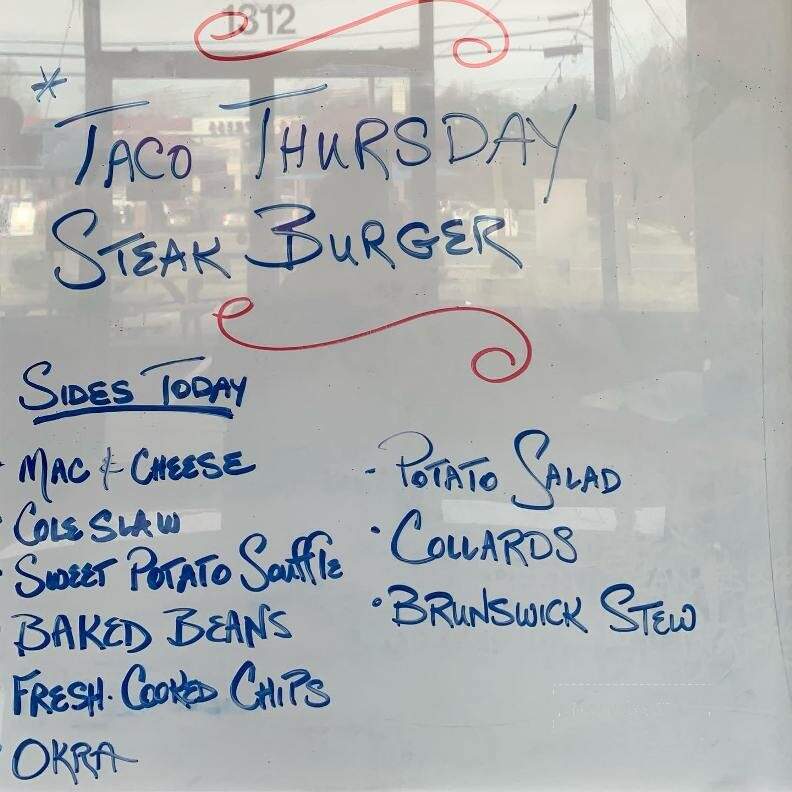 1312
* TACO THURSDAY
STEAK BURGER
SIDES TODAY
- MAC & CHEESE
· COLE SLAW
· SWEET POTATO SOUFFLE
BAKED BEANS
FRESH-COOKED CHIPS
· OKRA
- POTATO SALAD
· COLLARDS
· BRUNSWICK STEW